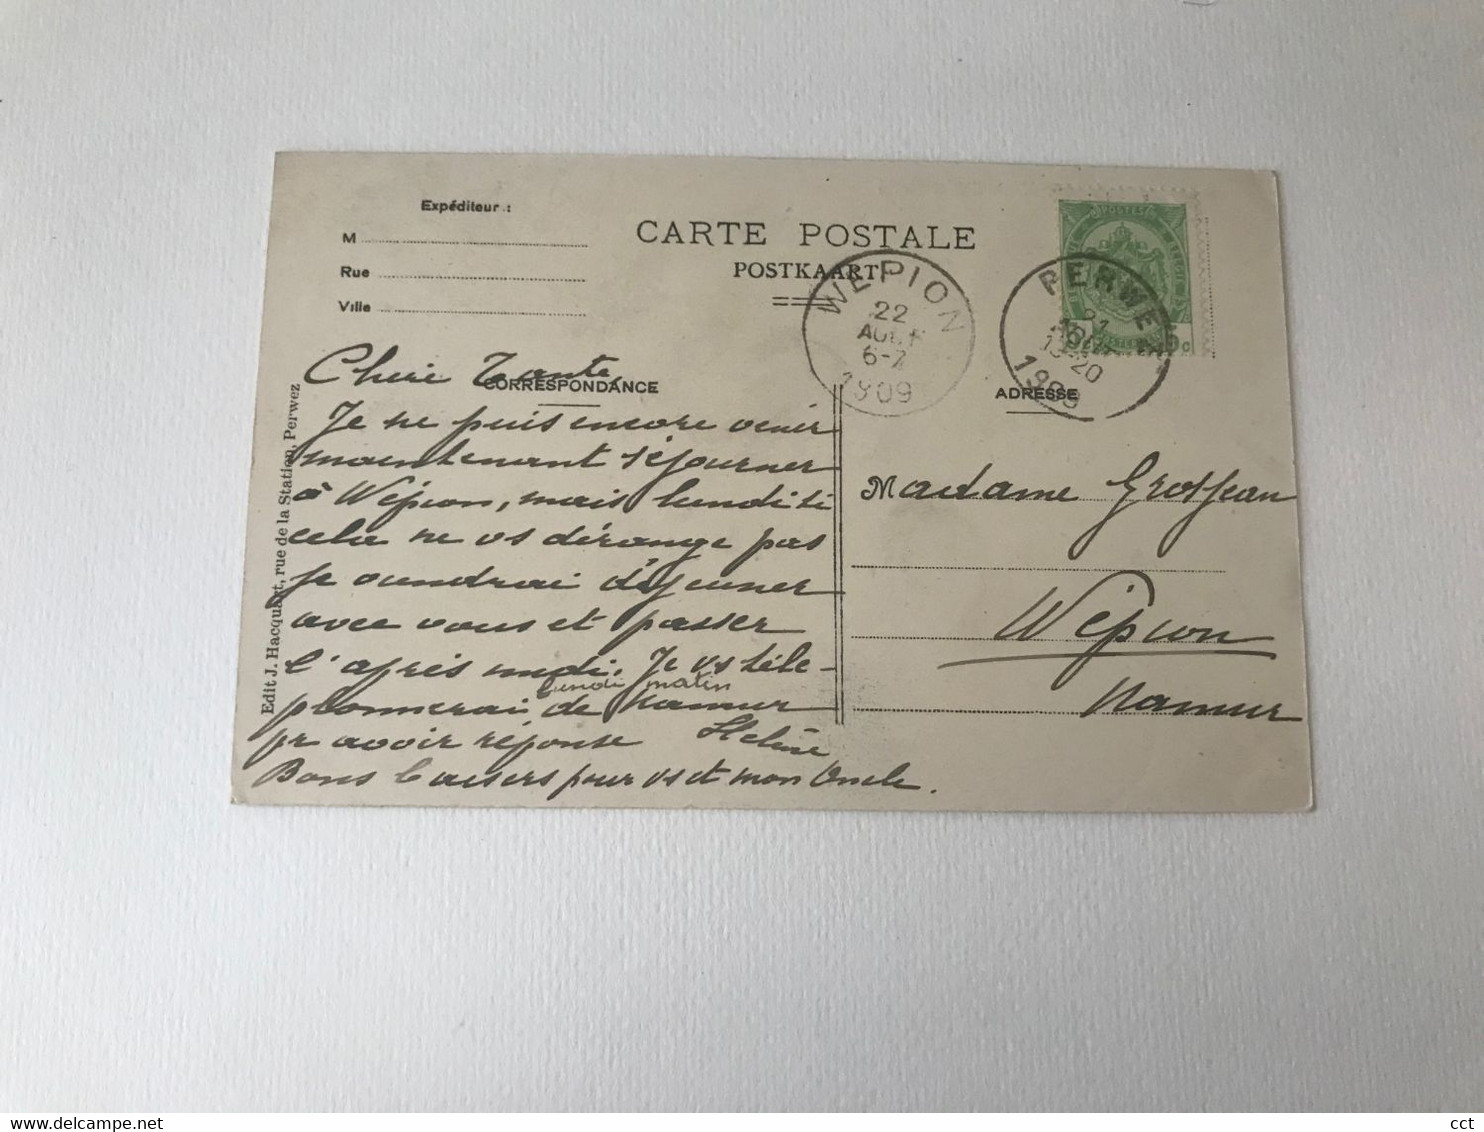 Expéditeur :
M
Rue
Ville
CARTE POSTALE
POSTKAART
WÉPION
22
AOUT
6-7
1909
PERWEZ
21
13-20
1909
POSTES
CORRESPONDANCE
ADRESSE
Chère Tante,
Je ne puis encore venir
maintenant séjourner
à Wépion, mais lundi si
cela ne vs dérange pas
je viendrai déjeuner
avec vous et passer
l'après midi. Je vs télé-
lundi matin
phonnerai, de Namur
pr avoir réponse Hélène
Bons baisers pour vs et mon Oncle.
Madame Grosjean
Wépion
Namur
Edit J. Hacquart, rue de la Station, Perwez
delcampe.net
cct